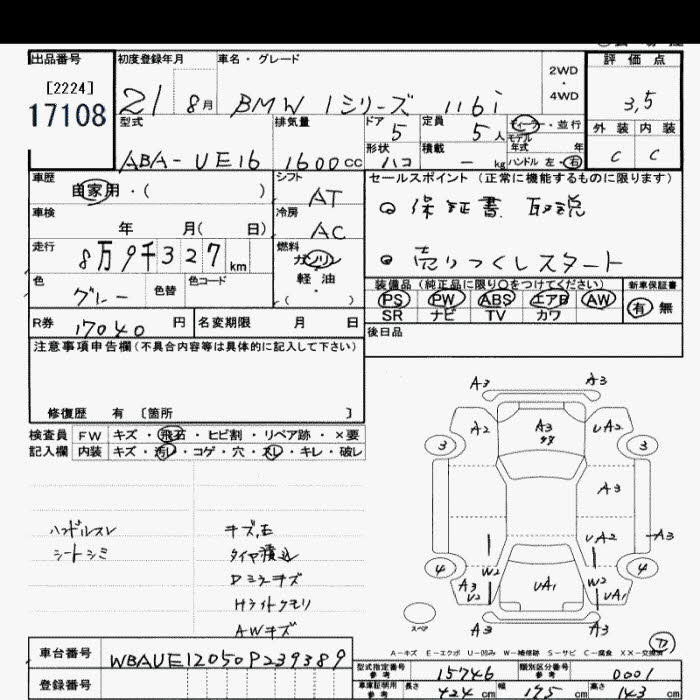 出品番号 初度登録年月 車名・グレード 評価点
[2224]
17108
21 8月 BMW 1シリーズ 116i
2WD・4WD
3,5
型式 排気量 ドア 定員 ディーラー・並行
ABA-UE16 1600cc 5 5人
モデル年式 年
外装 内装
C C
形状 積載
ハコ - kg ハンドル 左・右
車歴 シフト セールスポイント (正常に機能するものに限ります)
自家用・( ) AT
保証書 取説
車検 冷房
年 月( 日) AC
走行 燃料
8万9千327km ガソリン
売りつくしスタート
軽油
・( )
色 色替 色コード
グレー
装備品 (純正品に限り○をつけてください) 新車保証書
PS PW ABS エアB AW 有 無
SR ナビ TV カワ
R券 17040円 名変期限 月 日
後日品
注意事項申告欄(不具合内容等は具体的に記入して下さい)
修復歴 有 〔箇所 〕
検査員 FW キズ・飛石・ヒビ割・リペア跡・×要
記入欄 内装 キズ・汚レ・コゲ・穴・スレ・キレ・破レ
A3 A3
A2 A3 UA2
3 3
A3
UA2 A3
4 W2 W2 4
A3 UA1 UA1
A3 A3
ハンドルスレ
シートシミ
キズ,エ
Dミラーキズ
Hライトクモリ
AWキズ
スペア
A-キズ E-エクボ U-凹み W-補修跡 S-サビ C-腐食 XX-交換済
車台番号 WBAUE12050P239389
登録番号
型式指定番号 参考 15746 類別区分番号 参考 0001
車庫証明用 参考 長さ 424cm 幅 175cm 高さ 143cm